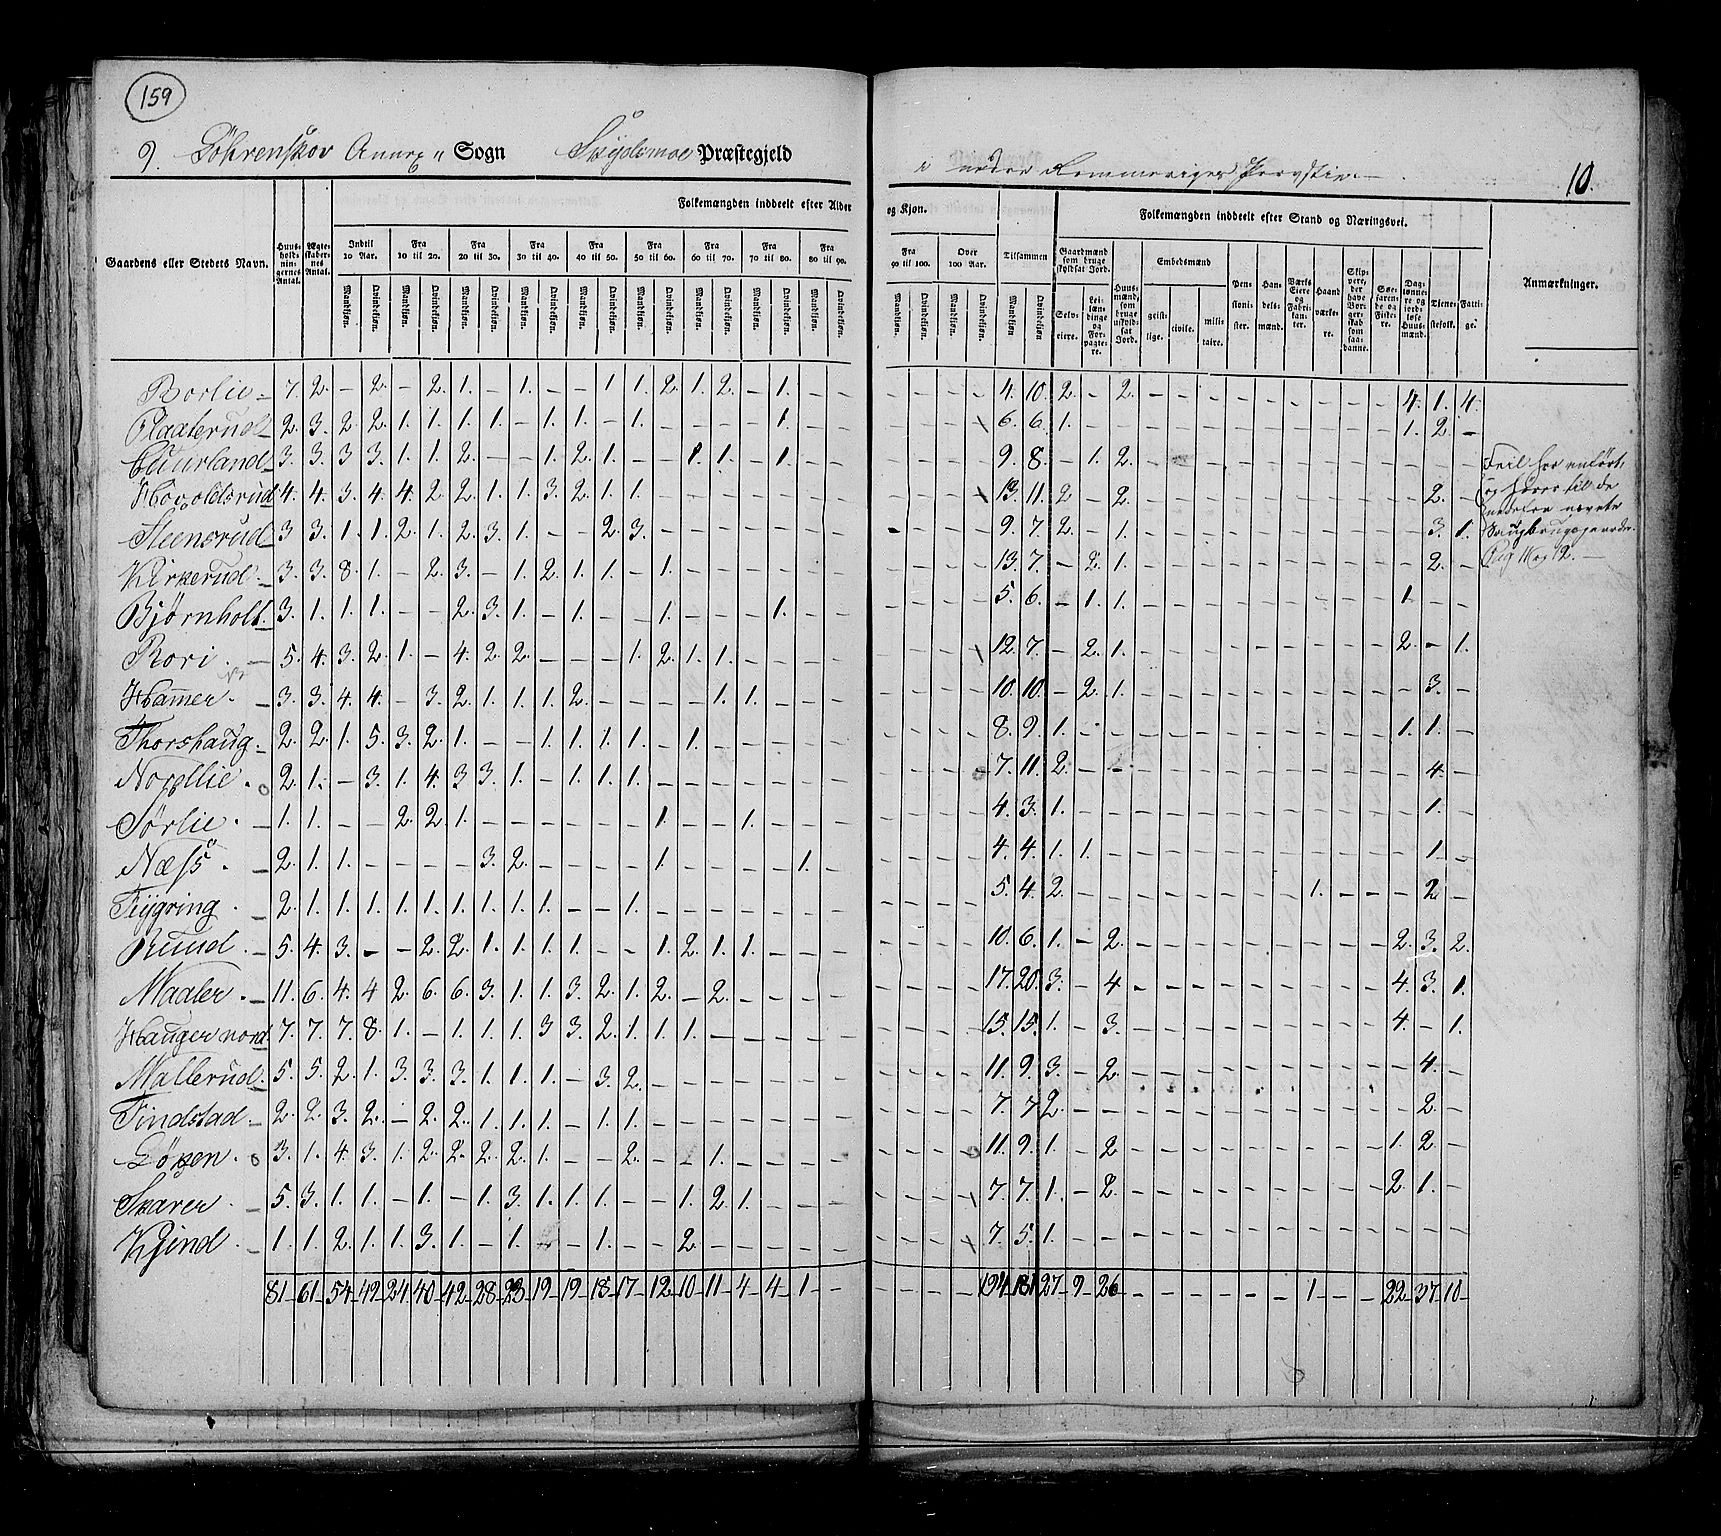 159
9. Løhrenskov Annex Sogn Skydsmoe Præstegjeld
i nedre Rommeriges Provstie 10.
Gaardens eller Stedets Navn.
Huus-holdnin-gernes Antal.
Ægte-skaber-nes Antal.
Folkemængden inddeelt efter Alder og Kjøn.
Folkemængden inddeelt efter Stand og Næringsvei.
Indtil 10 Aar. Fra 10 til 20. Fra 20 til 30. Fra 30 til 40. Fra 40 til 50. Fra 50 til 60. Fra 60 til 70. Fra 70 til 80. Fra 80 til 90. Fra 90 til 100. Over 100 Aar. Tilsammen
Mandkjøn. Qvindekjøn.
Gaardmænd som bruge skyldsat Jord. Selv-eiere. Lei-lændinge og For-pagtere. Huus-mænd, som bruge uskyldsat Jord. Embedsmænd geist-lige. civile. mili-taire. Pen-sioni-ster. Han-dels-mænd. Værks Eiere og Fabri-kanter. Haand-værke-re. Skip-pere, der have Bor-ger-skab som saa-danne. Søe-farende og Fiske-re. Dag-lønne-re og jord-løse Huus-mænd. Tiene-stefolk. Fatti-ge.
Anmærkninger.
Borlie 7. 2. – 2. – 2. 1. – 1. – – 1. 1. 2. 1. 2. – 1. – – – – – – 4. 10. 2. – 2. – – – – – – – – – 4. 1. 4.
Plaaterud 2. 3. 2. 2. 1. 1. 1. 1. – 1. 1. – 1. – – – – 1. – – – – – 6. 6. 1. – – – – – – – – – – – 1. 2. –
Cuurland 3. 3. 3. 3. 1. 1. 2. – – 1. 2. 1. – – 1. 1. – 1. – – – – – – 9. 8. – 1. 2. – – – – – – – – – – – –
Hovoldsrud 4. 4. 3. 4. 4. 2. 2. 1. 1. 3. 2. 1. 1. – – – – – – – – – – 13. 11. 2. – 2. – – – – – – – – – – 2. –
Steensrud 3. 3. 1. 1. 2. 1. 2. 3. 1. – – 2. 3. – – – – – – – – – – – 9. 7. 2. – 1. – – – – – – – – – – 3. 1.
Kirkerud 3. 3. 8. 1. – 2. 3. – 1. 2. 1. 1. – 1. – – – – – – – – – – 13. 7. – 2. 1. – – – – – – – – – – 2. –
Bjørnholt 3. 1. 1. 1. – – 2. 3. 1. – 1. – – 1. – – – 1. – – – – – – 5. 6. – 1. 1. – – – – – – – – – 1. – –
Rori 5. 4. 3. 2. 1. – 4. 2. 2. – – – 1. 2. 1. 1. – – – – – – – 12. 7. – 2. 1. – – – – – – – – – 2. – 1.
Hammer 3. 3. 4. 4. – 3. 2. 1. 1. 1. 2. – – – – 1. 1. – – – – – – – 10. 10. – 2. 1. – – – – – – – – – – 3. –
Thorshaug 2. 2. 1. 5. 3. 2. 1. – – 1. 1. 1. 1. – 1. – – – – – – – – – 8. 9. 1. – – – – – – – – – – – 1. 1. –
Nordlie 2. 1. – 3. 1. 4. 3. 3. 1. – 1. 1. 1. – – – – – – – – – – 7. 11. 2. – – – – – – – – – – – – 4. –
Sørlie 1. 1. – – 2. 2. 1. – – – – – – 1. – – 1. – – – – – – – 4. 3. 1. – – – – – – – – – – – – 1. –
Næss 2. 1. 1. – – – – 3. 2. – – – – 1. – – – – 1. – – – – – 4. 4. 1. 1. – – – – – – – – – – – 1. –
Fiygring 2. 1. 1. 1. 1. 1. 1. 1. 1. 1. – – 1. – – – – – – – – – – – 5. 4. 2. – – – – – – – – 1. – – – 2. –
Ruud 5. 4. 3. – – 2. 2. 1. 1. 1. 1. – – 1. 2. 1. 1. – – – – – – – 10. 6. 1. – 2. – – – – – – – – – 2. 3. 2.
Maaler 11. 6. 4. 4 2. 6. 6. 3. 1. 1. 3. 2. 1. 2. – 2. – – – – – – – – 17. 20. 3. – 4 – – – – – – – – – 4. 3. 1.
Hauger nord 7. 7. 7. 8. 1. – 1. 1. 1. 3 3. 2. 1. 1. 1. – – – – – – – – – 15. 15. 1. – 3. – – – – – – – – – 4. – 1.
Mallerud 5. 5. 2. 1. 3. 3. 3. 1. 1. 1. – 3. 2. – – – – – – – – – – – 11. 9. 3. – 2. – – – – – – – – – – 4. –
Findstad 2. 2. 3. 2. – 2. 2. 1. 1. 1. – 1. 1. – – – – – – – – – – – 7. 7 2. – – – – – – – – – – – – 2. –
Løken 3. 1. 4. 3. 1. 2. 2. 2. 2. 1. – – 2. – – 1. – – – – – – – 11. 9. 1. – 2 – – – – – – – – – 1. 2. –
Skarer 5. 3. 1. 1. – 1. – 1. 3. 1. 1. 1. – – 1. 2. 1. – – – – – – 7. 7. 1. – 2. – – – – – – – – – 2. 1. –
Kjind 1. 1. 2. 1. 1. 3. 1. – 1. – – 1. – – 2. – – – – – – – – 7. 5. 1. – – – – – – – – – – – – – –
81 61 54 49 24 40 42 28 23 19 19 18 17 12 10 11 4 4 1 – – – – – 194 181 27 9 26 – – – – – – 1 – – 22 37 10
Feil her anført,
og hører til de
Saugbrugsgaarder
Pag 11 og 12.